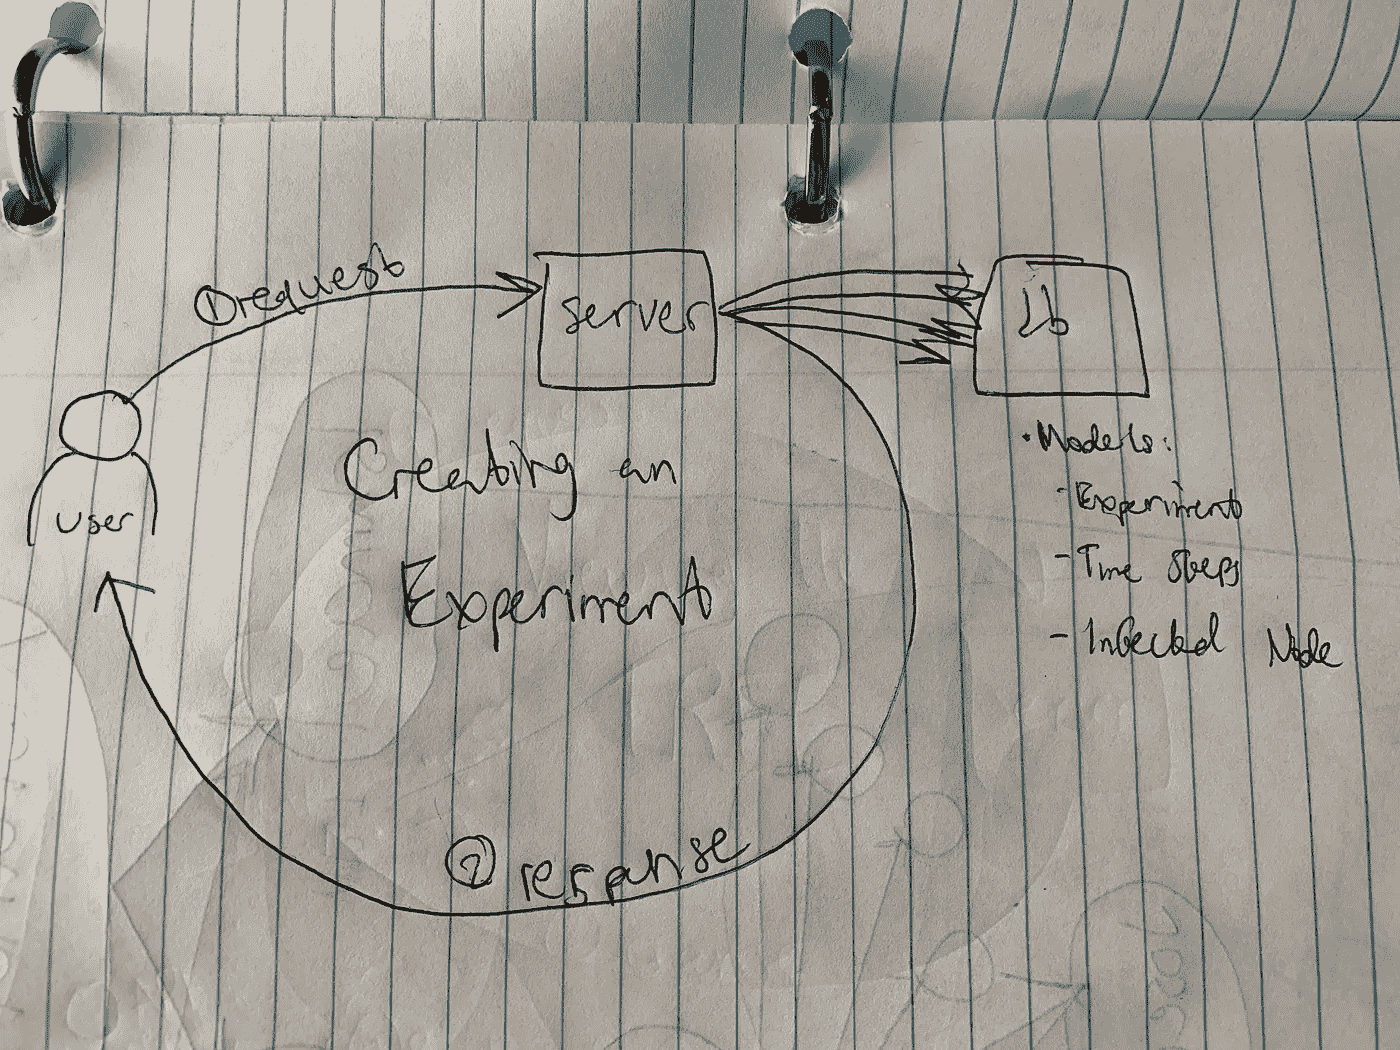 ① request
server
db
user
Creating an
Experiment
• Models:
- Experiment
- Time Steps
- Infected Node
② response